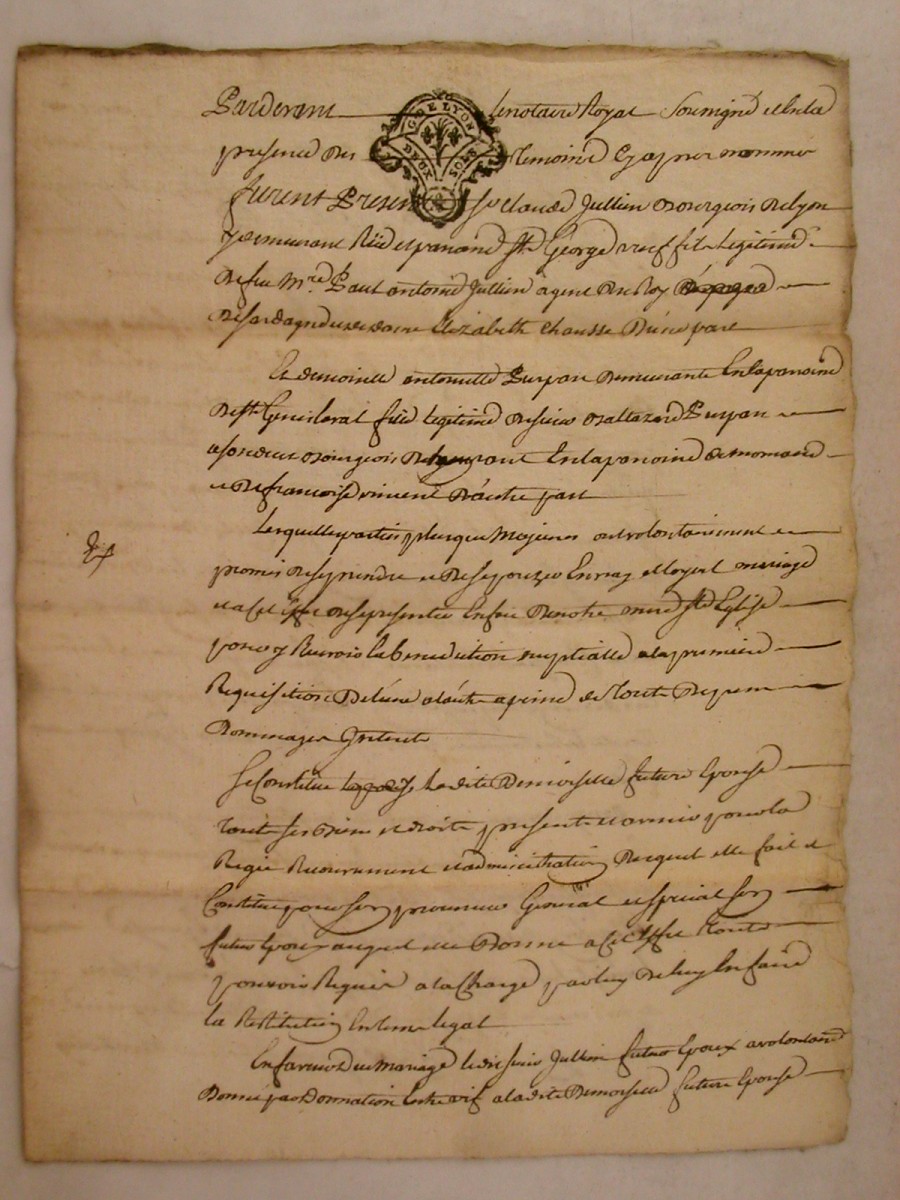 Pardevant le notaire Royal Soussigné et En la
G. DE LYON
DEUX SOLS
presence des temoins Cy apres nommés
furent Presents Sr Claude Jullien Bourgeois de lyon
y demeurant Rüe et paroisse St George fils Legitime
de feu Mre Paul antoine Jullien agent du Roy
de sardagne et de dame Elizabeth Chausse D'une part
Et demoiselle antoinette Puspan demeurante En la paroisse
de St Genis laval fille legitime de sieur Baltazard Puspan
Bourgeois En la paroisse de mornand
et de francoise vincent D'autre part
Lesquelles parties plus que Majeures ont volontairement
promis de se prendre et de sepouzer En vray et loyal mariage
et a cet effet de se presenter En face de notre mere Ste Eglise
pour y Recevoir la benediction nuptialle a la premiere
Requisition de l'une a l'autre a peine de Toute Depens
Dommages Interets
Se Constitue Ladite Demoiselle future Epouse
Tout ses Biens et droits presents et avenir pour la
Regie Recouvrement et administration Desquels elle fait et
Constitue pour son procureur General et special son
futur Epoux auquel elle Donne a cet Effet Toute
pouvoir Requis a la Charge par luy De luy En faire
la Restitution En tems legal
En faveur du Mariage ledit sieur Jullien futur Epoux a volontaire
Donné par Donnation Entre vif a la dite Demoiselle future Epouse